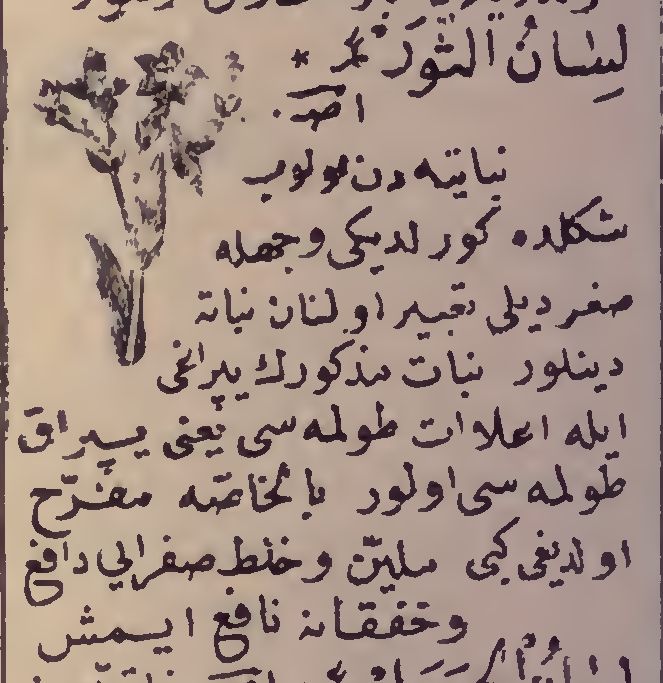 لِسَانُ الثَّوْرِ
نباتیه دن اولوب
شكلده كورلدیكی وجهله
صغر دیلی تعبیر اولنان نباته
دینلور نبات مذكورك یپراغی
ایله اعلا ات طولمه سی یعنی یپراق
طولمه سی اولور بالخاصّه مفرّح
اولدیغی كبی ملیّن و خلط صفرایی دافع
و خفقانه نافع ایمش